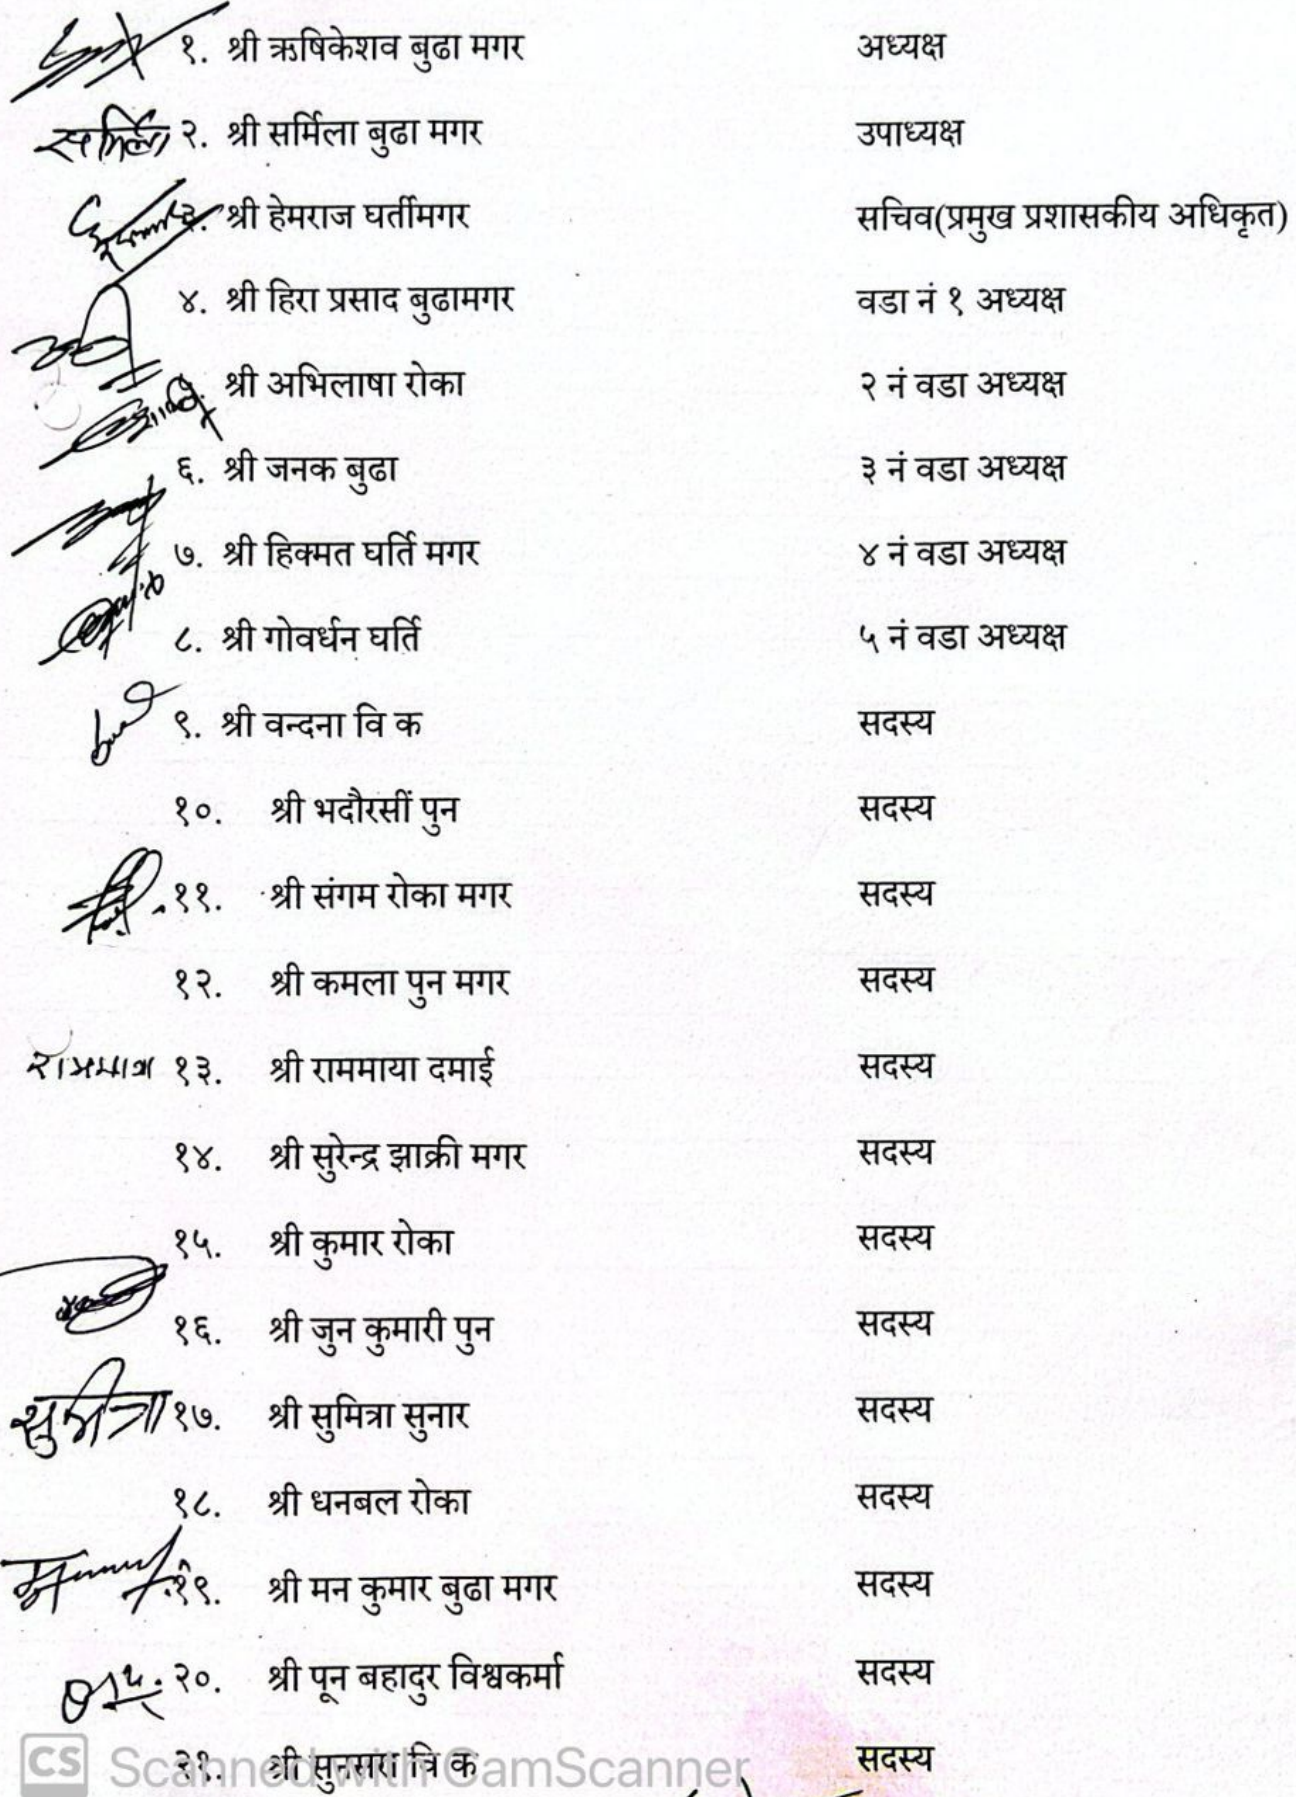 १. श्री ऋषिकेशव बुढा मगर अध्यक्ष
सर्मिला २. श्री सर्मिला बुढा मगर उपाध्यक्ष
३. श्री हेमराज घर्तीमगर सचिव(प्रमुख प्रशासकीय अधिकृत)
४. श्री हिरा प्रसाद बुढामगर वडा नं १ अध्यक्ष
श्री अभिलाषा रोका २ नं वडा अध्यक्ष
६. श्री जनक बुढा ३ नं वडा अध्यक्ष
७. श्री हिक्मत घर्ति मगर ४ नं वडा अध्यक्ष
८. श्री गोवर्धन घर्ति ५ नं वडा अध्यक्ष
९. श्री वन्दना वि क सदस्य
१०. श्री भदौरसीं पुन सदस्य
११. श्री संगम रोका मगर सदस्य
१२. श्री कमला पुन मगर सदस्य
राममाया १३. श्री राममाया दमाई सदस्य
१४. श्री सुरेन्द्र झाक्री मगर सदस्य
१५. श्री कुमार रोका सदस्य
१६. श्री जुन कुमारी पुन सदस्य
सुमित्रा १७. श्री सुमित्रा सुनार सदस्य
१८. श्री धनबल रोका सदस्य
१९. श्री मन कुमार बुढा मगर सदस्य
२०. श्री पून बहादुर विश्वकर्मा सदस्य
२१. श्री सुनसरा वि क सदस्य
CS Scanned with CamScanner